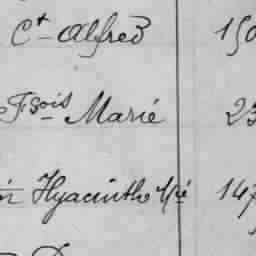 Ct Alfred 150
Fsois Marie 23
in Hyacinthe M/é 147